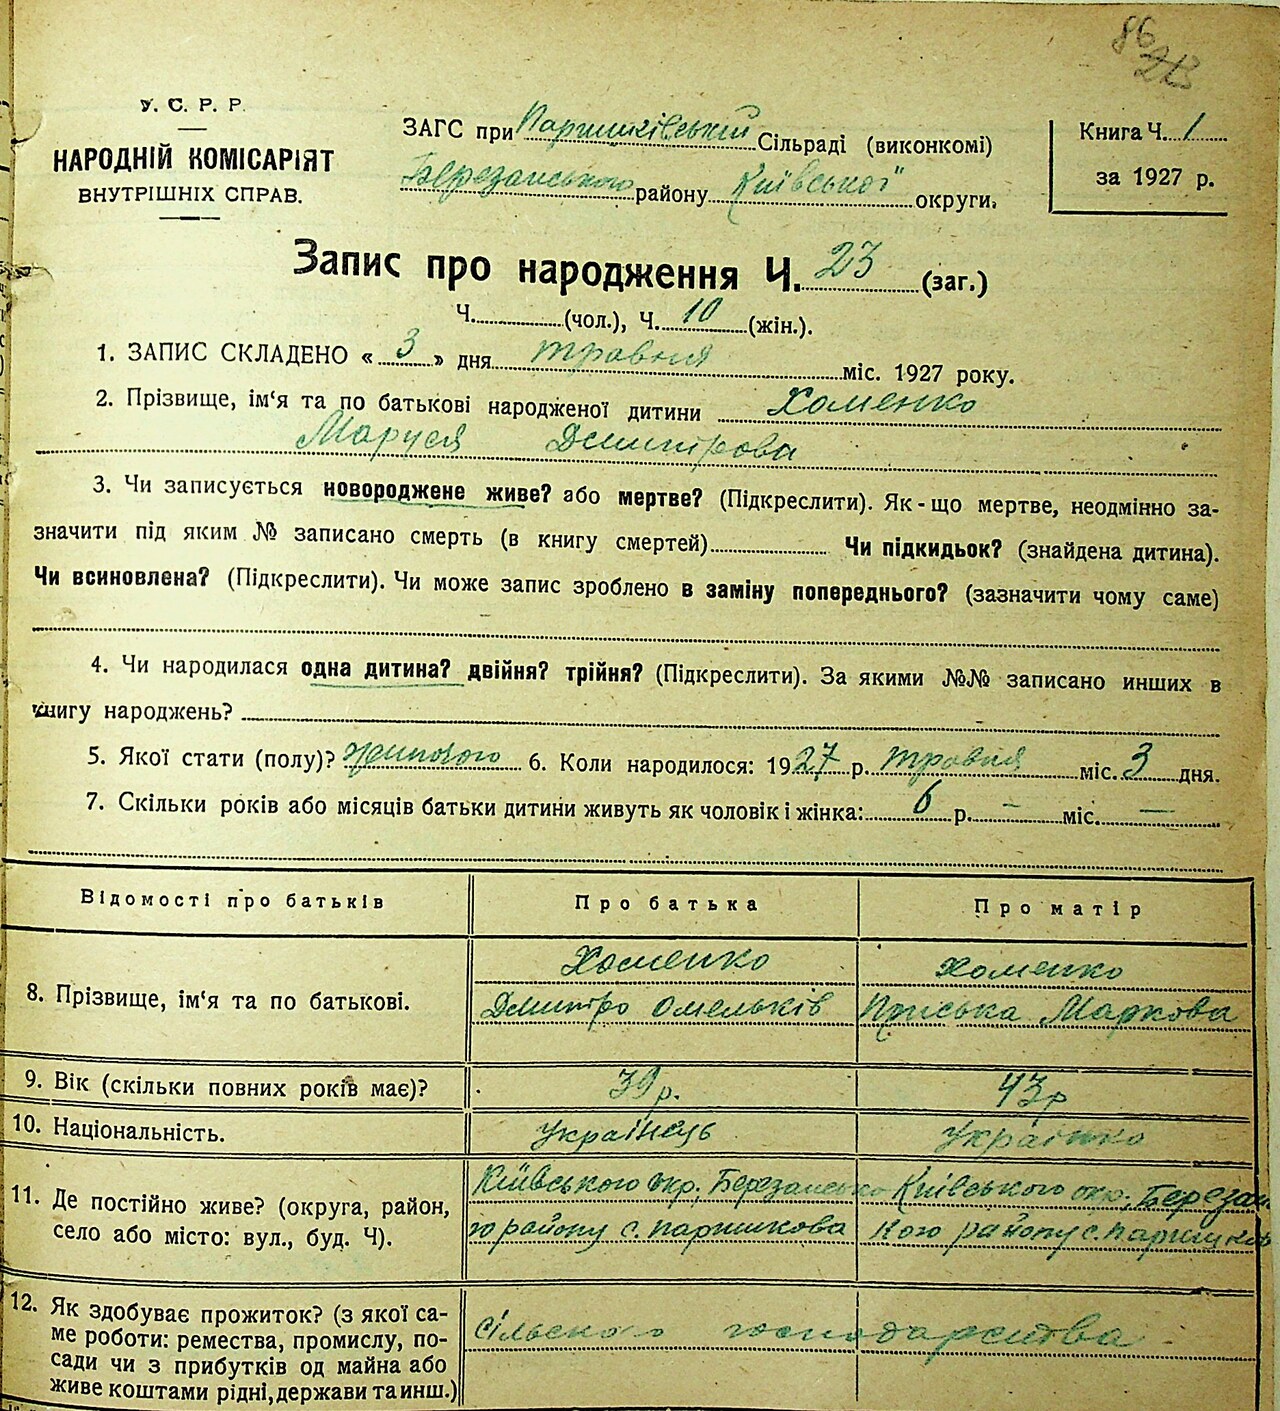 86
23
У. С. Р. Р.
НАРОДНІЙ КОМІСАРІЯТ
ВНУТРІШНІХ СПРАВ.
ЗАГС при Паришківській Сільраді (виконкомі)
Березанського району Київської округи.
Книга Ч. 1
за 1927 р.
Запис про народження Ч. 23 (заг.)
Ч. (чол.), Ч. 10 (жін.).
1. ЗАПИС СКЛАДЕНО « 3 » дня травня міс. 1927 року.
2. Прізвище, ім'я та по батькові народженої дитини Хоменко
Маруся Дмитрова
3. Чи записується новороджене живе? або мертве? (Підкреслити). Як-що мертве, неодмінно за-
значити під яким № записано смерть (в книгу смертей) Чи підкидьок? (знайдена дитина).
Чи всиновлена? (Підкреслити). Чи може запис зроблено в заміну попереднього? (зазначити чому саме)
4. Чи народилася одна дитина? двійня? трійня? (Підкреслити). За якими №№ записано инших в
книгу народжень?
5. Якої стати (полу)? жиночого 6. Коли народилося: 1927 р. травня міс. 3 дня.
7. Скільки років або місяців батьки дитини живуть як чоловік і жінка: 6 р. — міс. —
Відомості про батьків Про батька Про матір
8. Прізвище, ім'я та по батькові.
Хоменко
Дмитро Омельків
Хоменко
Приська Маркова
9. Вік (скільки повних років має)? 39 р. 43 р
10. Національність. Українець Українко
11. Де постійно живе? (округа, район,
село або місто: вул., буд. Ч).
Київського окр. Березансько
го району с. Паришкова
Київського окр. Березан
кого району с. Паришков
12. Як здобуває прожиток? (з якої са-
ме роботи: ремества, промислу, по-
сади чи з прибутків од майна або
живе коштами рідні, держави та инш.)
сільского господарства